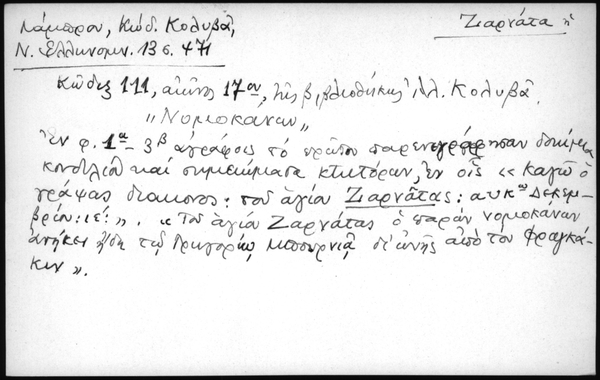 Λάμπρου, Κώδ. Κολυβᾶ,
Ζαρνάτα ἡ
Ν. Ἑλληνομν. 13 σ. 471
Κῶδιξ 111, αἰῶνος 17ου, τῆς βιβλιοθήκης Ἀλ. Κολυβᾶ,
"Νομοκανων"
Ἐν φ. 1α - 3β ἀγράφοις τὸ πρῶτον παρενεγράφησαν
κονδυλίου καὶ σημειώματα κτητόρων, ἐν οἷς « καγὼ ὁ
γράψας διακονος: του ἁγία Ζαρνᾶτας: αυκω Δεκεμ-
βρίου: ιε΄: ». « Του ἁγία Ζαρνάτας ὁ παρὸν νομοκανων
ἀνήκει ἤδη τῷ Γρηγορίῳ δι' ὠνῆς ἀπὸ τὸν Φραγκά-
κην ».